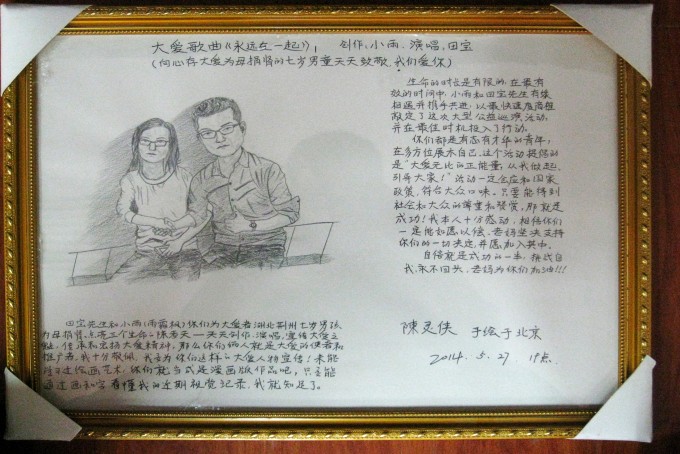 大爱歌曲《永远在一起》, 创作,小雨、演唱,田宝
(向心存大爱为母捐肾的七岁男童天天致敬,我们爱你)
生命的时长是有限的,在最有
效的时间中,小雨和田宝先生有缘
相遇并携手共进,以最快速度商榷
敲定了这次大型公益巡演活动,
并在最佳时机投入了行动。
你们都是有志有才华的青年,
在多方位展示自己,这个活动提倡的
是"大爱无比的正能量,从我做起,
引导大家!"活动一定会应和国家
政策,符合大众口味。只要能得到
社会和大众的尊重和赞赏,那就是
成功!我本人十分感动,相信你们
一定能如愿以偿,老妈坚决支持
你们的一切决定,并愿加入其中。
自信就是成功的一半,挑战自
我,永不回头,老妈为你们加油!!!
田宝先生和小雨(雨霖枫)你们为大爱者湖北荆州七岁男孩
为母捐肾,点亮三个生命的陈孝天——天天创作、演唱,宣传大爱之
歌,传承和宏扬大爱精神,那么你们俩人就是大爱的使者和
推广者,我十分敬佩,我专为你们这样的大爱人物宣传!未能
绘画艺术,你们就当它是漫画版作品吧,只要能
通过画和字看懂我的近期视觉记录,我就知足了。
陳灵侠 手绘于北京
2014.5.27. 19点.